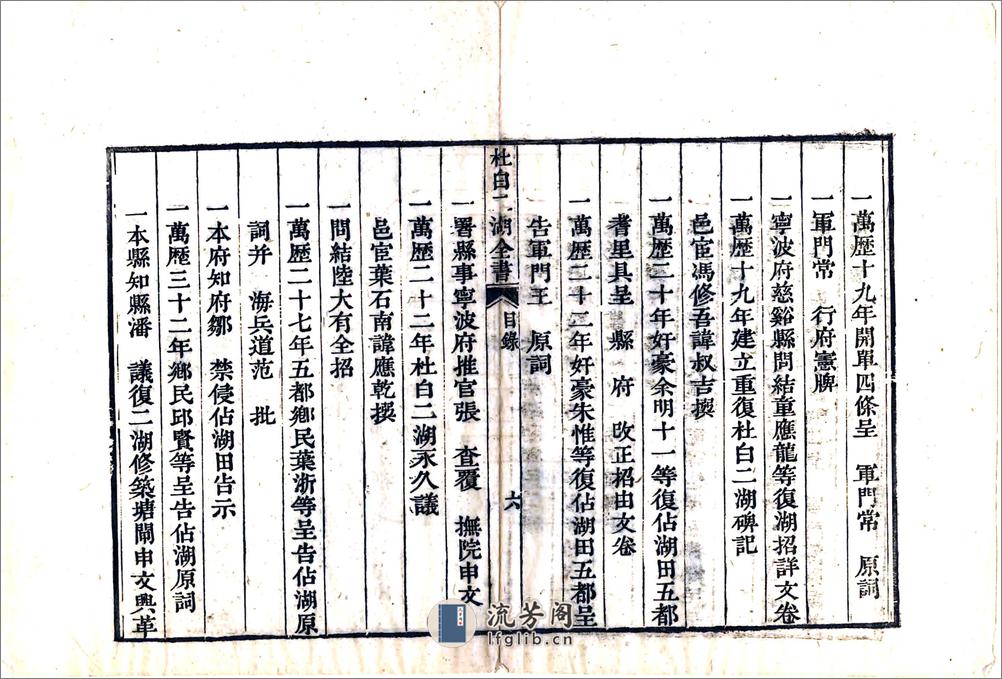 一萬歷十九年開單四條呈　軍門常　原詞
一軍門常　行府憲牌
一寧波府慈谿縣問結童應龍等復湖招詳文卷
一萬歷十九年建立重復杜白二湖碑記
邑宦馮修吾諱叔吉撰
一萬歷二十年奸豪余明十一等復佔湖田五都
耆里具呈　縣　府　改正招由文卷
一萬歷二十二年奸豪朱惟等復佔湖田五都呈
告軍門王　原詞
杜白二湖全書　目錄　六
一署縣事寧波府推官張　查覆　撫院申文
一萬歷二十二年杜白二湖永久議
邑宦葉石南諱應乾撰
一問結陸大有全招
一萬歷二十七年五都鄉民葉浙等呈告佔湖原
詞并　海兵道范　批
一本府知府鄒　禁侵佔湖田告示
一萬歷三十二年鄉民邱賢等呈告佔湖原詞
一本縣知縣潘　議復二湖修築塘閘申文興革
流芳阁
lfglib.cn